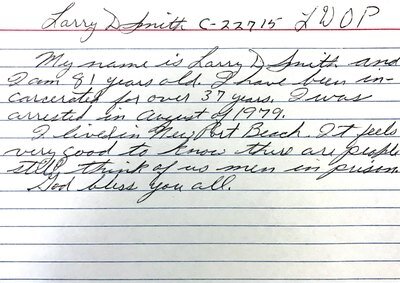 Larry D Smith C-22715 LWOP
My name is Larry D Smith and
I am 81 years old. I have been in-
carserated for over 37 years. I was
arrested in August of 1979.
I lived in New Port Beach. It feels
very good to know there are people
still think of us men in prison.
God bless you all.